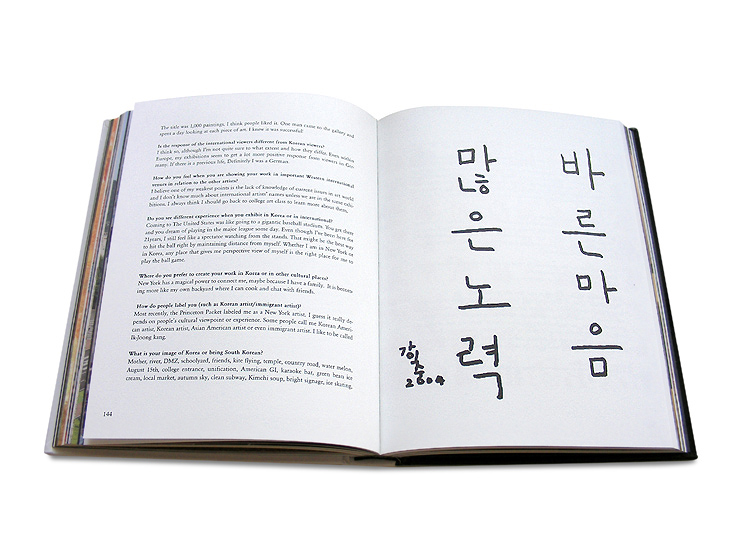 The title was 1,000 paintings, I think people liked it. One man came to the gallery and
spent a day looking at each piece of art. I knew it was successful!
Is the response of the international viewers different from Korean viewers?
I think so, although I'm not quite sure to what extent and how they differ. Even within
Europe, my exhibitions seem to get a lot more positive response from viewers in Ger-
many. If there is a previous life, Definitely I was a German.
How do you feel when you are showing your work in important Western international
venues in relation to the other artists?
I believe one of my weakest points is the lack of knowledge of current issues in art world
and I don't know much about international artists' names unless we are in the same exhi-
bitions. I always think I should go back to college art class to learn more about them.
Do you see different experience when you exhibit in Korea or in international?
Coming to The United States was like going to a gigantic baseball stadium. You get there
and you dream of playing in the major league some day. Even though I've been here for
21years, I still feel like a spectator watching from the stands. That might be the best way
to hit the ball right by maintaining distance from myself. Whether I am in New York or
in Korea, any place that gives me perspective view of myself is the right place for me to
play the ball game.
Where do you prefer to create your work in Korea or in other cultural places?
New York has a magical power to connect me, maybe because I have a family. It is becom-
ing more like my own backyard where I can cook and chat with friends.
How do people label you (such as Korean artist/immigrant artist)?
Most recently, the Princeton Packet labeled me as a New York artist. I guess it really de-
pends on people's cultural viewpoint or experience. Some people call me Korean Ameri-
can artist, Korean artist, Asian American artist or even immigrant artist. I like to be called
Ik-Joong kang.
What is your image of Korea or being South Korean?
Mother, river, DMZ, schoolyard, friends, kite flying, temple, country road, water melon,
August 15th, college entrance, unification, American GI, karaoke bar, green bean ice
cream, local market, autumn sky, clean subway, Kimchi soup, bright signage, ice skating,
144
바른마음
많은노력
강익중
2004